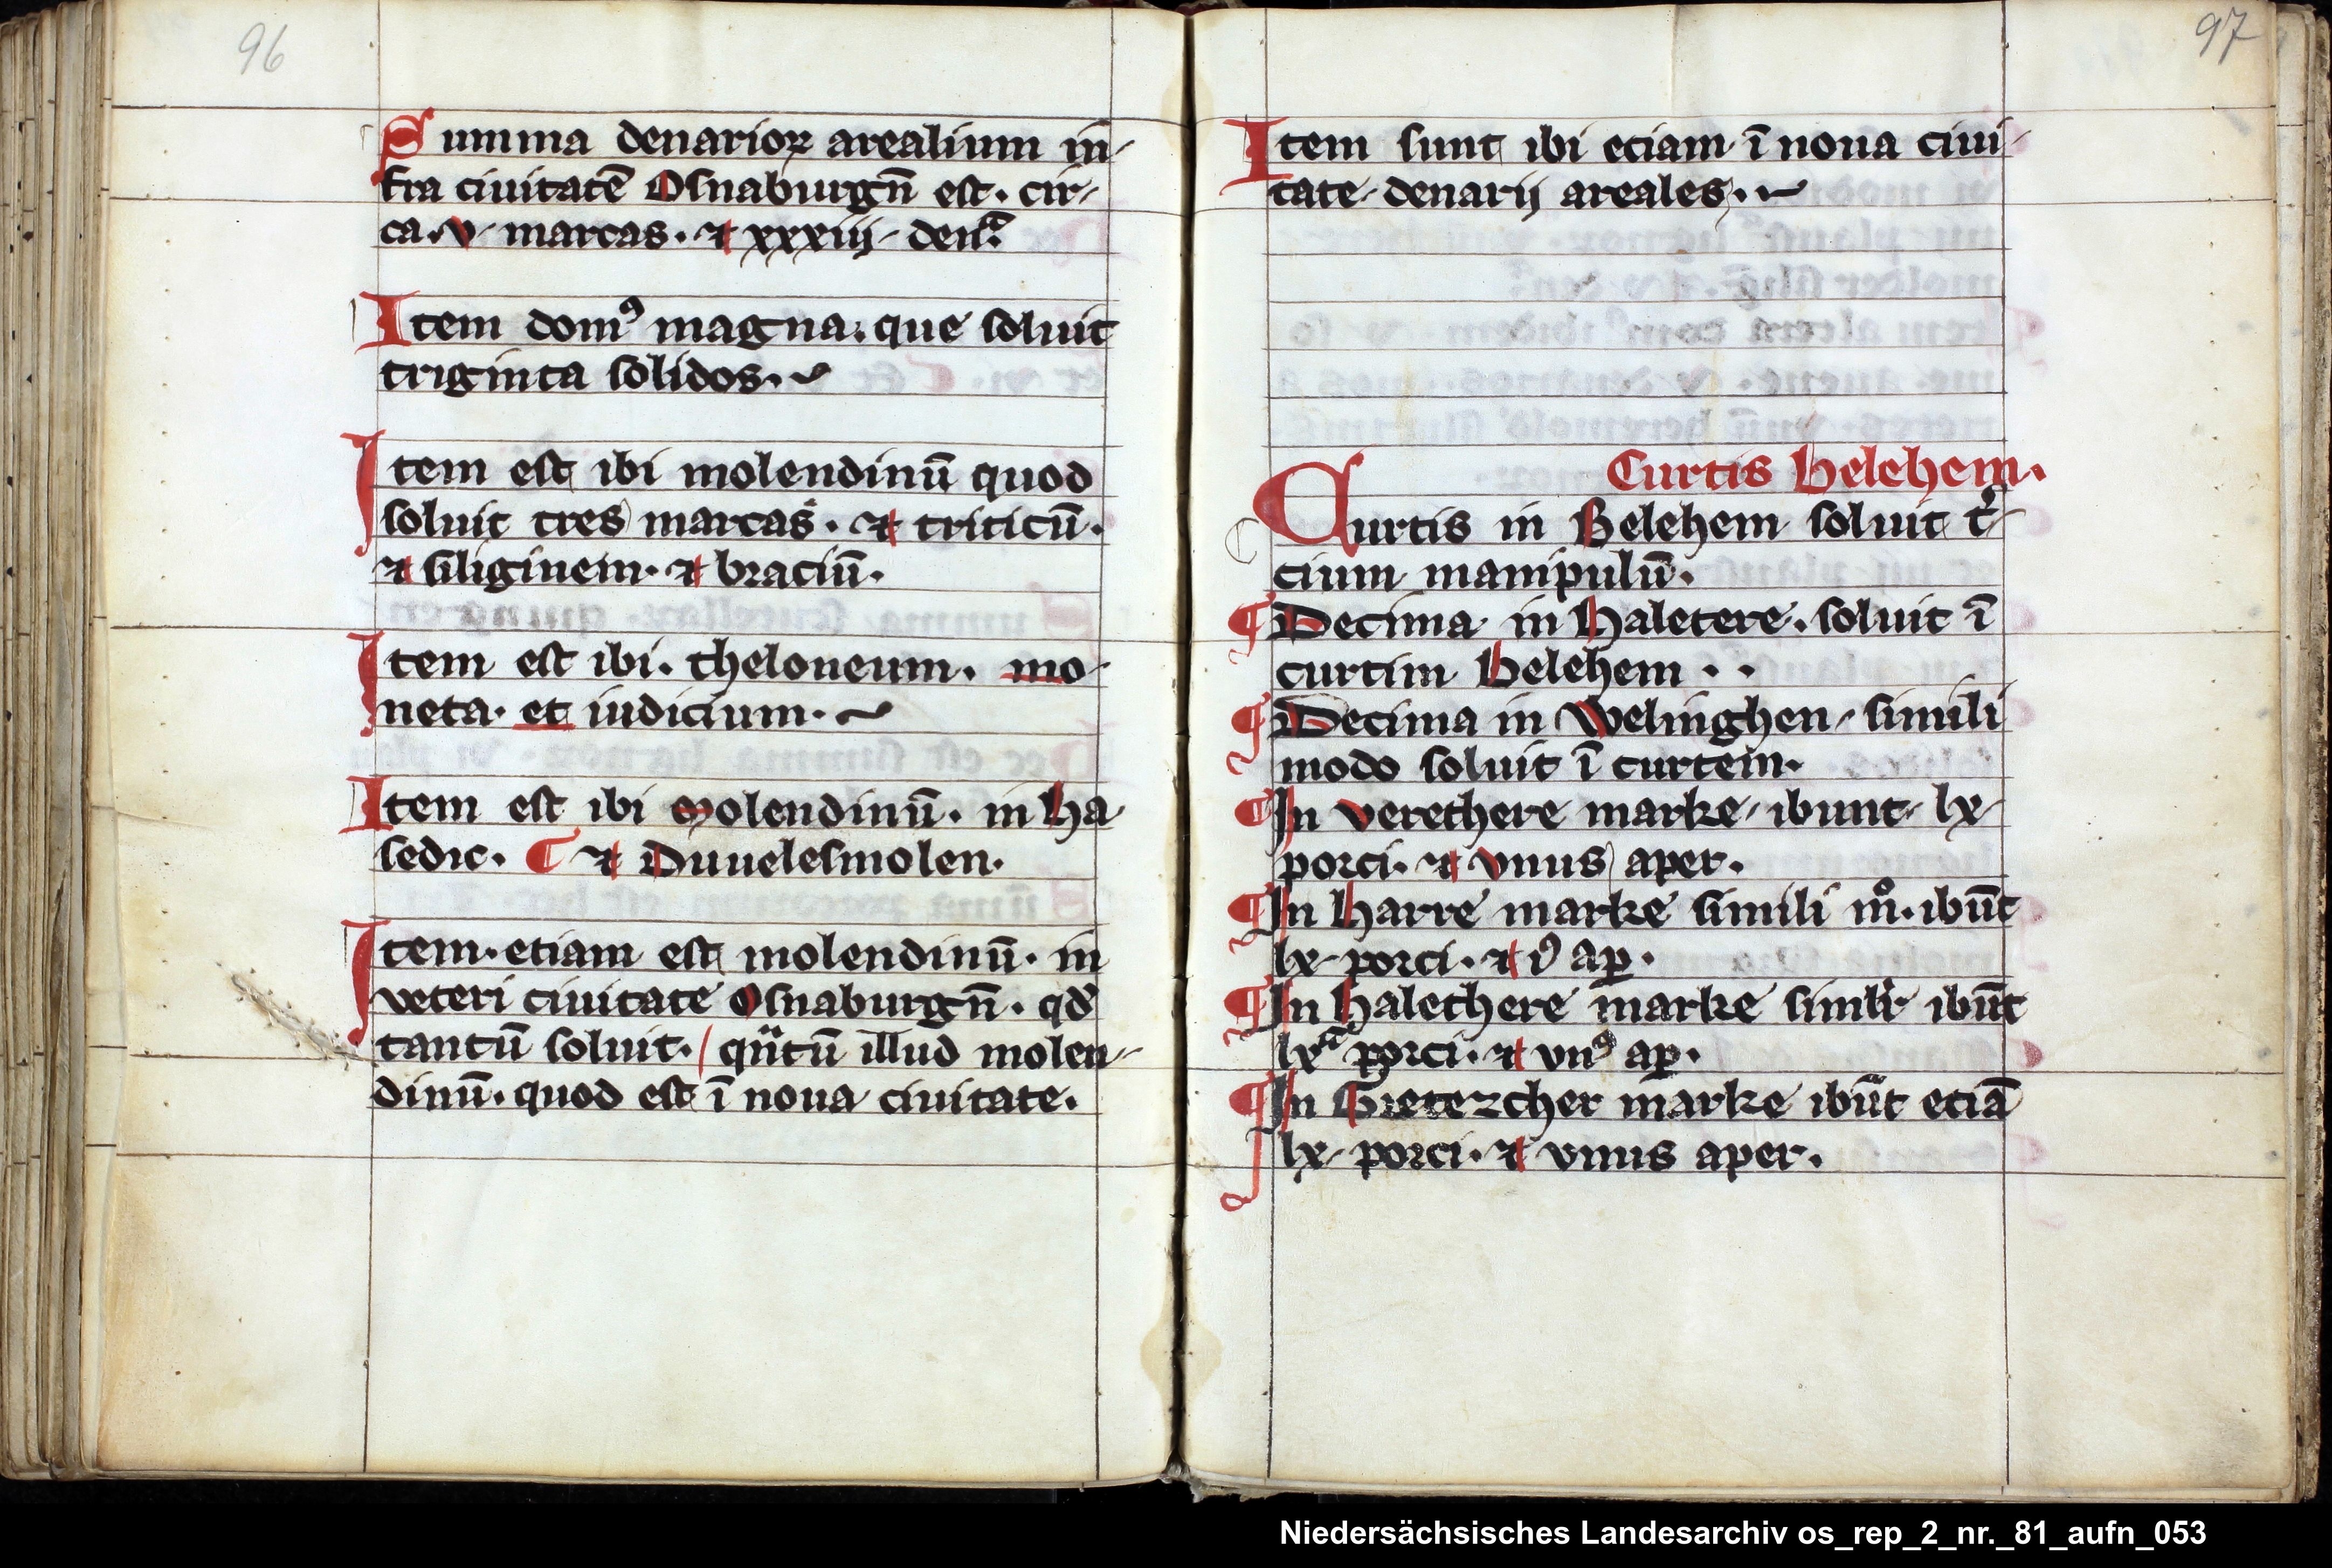 96
Summa denarioꝝ arealium in-
fra ciuitatē Osnaburgn̄ est. cir-
ca. v. marcas. ⁊ xxxiij. denᵃ.
Item domꝰ magna. que soluit
triginta solidos.
Item est ibi molendinū quod
soluit tres marcas. ⁊ triticū.
⁊ siliginem. ⁊ braciū.
Item est ibi. theloneum. mo-
neta. et iudicium.
Item est ibi Molendinū. in Ha-
sedic. ¶ ⁊ Duuelesmolen.
Item. etiam est molendinū. in
veteri ciuitate Osnaburgn̄. qd̄
tantū soluit. / qᵃntū illud molen-
dinū. quod est ī noua ciuitate.
97
Item sunt ibi eciam ī noua ciui-
tate denarij areales.
Curtis Helehem.
Curtis in Belehem soluit t͛-
cium manipulū.
¶ Decima in Haletere. soluit ī
curtim Belehem . .
¶ Decima in Welinghen simili
modo soluit ī curtem.
¶ In verethere marke ibunt lx
porci. ⁊ vnus aper.
¶ In Harre marke simili mº. ibūt
lx porci. ⁊ vꝰ ap̲.
¶ In Halethere marke simlr̄ ibūt
lxᵃ porci. ⁊ vnꝰ ap̲.
¶ In Gretezcher marke ibūt eciā
lx porci. ⁊ vnus aper.
Niedersächsisches Landesarchiv os_rep_2_nr._81_aufn_053